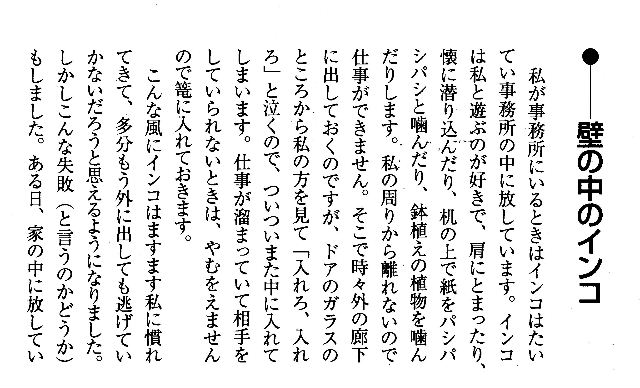 壁の中のインコ
私が事務所にいるときはインコはたい
てい事務所の中に放しています。インコ
は私と遊ぶのが好きで、肩にとまったり、
懐に潜り込んだり、机の上で紙をパシパ
シパシと噛んだり、鉢植えの植物を噛ん
だりします。私の周りから離れないので
仕事ができません。そこで時々外の廊下
に出しておくのですが、ドアのガラスの
ところから私の方を見て「入れろ、入れ
ろ」と泣くので、ついついまた中に入れて
しまいます。仕事が溜まっていて相手を
していられないときは、やむをえません
ので篭に入れておきます。
こんな風にインコはますます私に慣れ
てきて、多分もう外に出しても逃げてい
かないだろうと思えるようになりました。
しかしこんな失敗（と言うのかどうか）
もしました。ある日、家の中に放してい